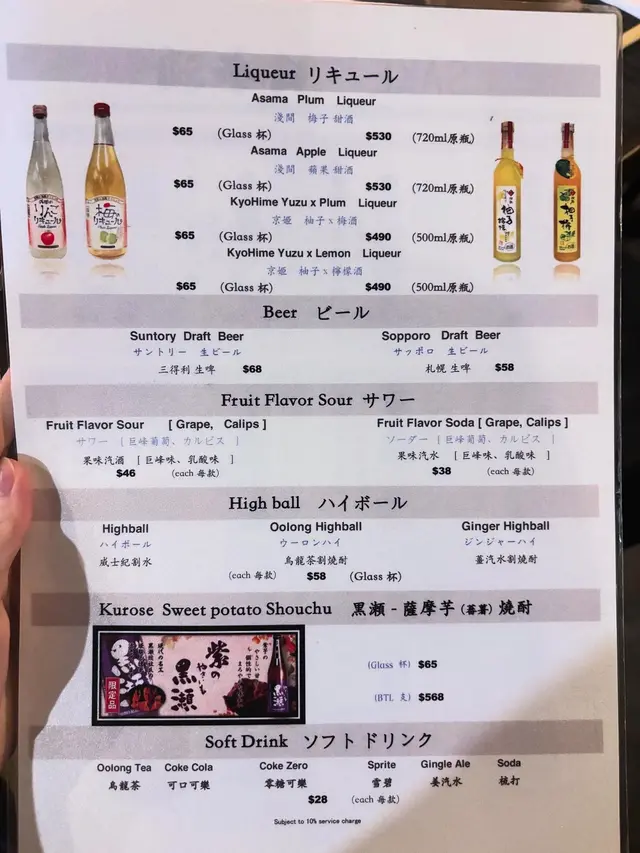 Liqueur リキュール
Asama Plum Liqueur
淺間 梅子甜酒
$65 (Glass 杯) $530 (720ml原瓶)
Asama Apple Liqueur
淺間 蘋果甜酒
$65 (Glass 杯) $530 (720ml原瓶)
KyoHime Yuzu x Plum Liqueur
京姬 柚子x梅酒
$65 (Glass 杯) $490 (500ml原瓶)
KyoHime Yuzu x Lemon Liqueur
京姬 柚子x檸檬酒
$65 (Glass 杯) $490 (500ml原瓶)
Beer ビール
Suntory Draft Beer Sopporo Draft Beer
サントリー 生ビール サッポロ 生ビール
三得利生啤 $68 札幌生啤 $58
Fruit Flavor Sour サワー
Fruit Flavor Sour [ Grape, Calips ] Fruit Flavor Soda [ Grape, Calips ]
サワー [ 巨峰葡萄、カルピス ] ソーダー [ 巨峰葡萄、カルピス ]
果味汽酒 [ 巨峰味、乳酸味 ] 果味汽水 [ 巨峰味、乳酸味 ]
$46 (each 每款) $38 (each 每款)
High ball ハイボール
Highball Oolong Highball Ginger Highball
ハイボール ウーロンハイ ジンジャーハイ
威士紀割水 烏龍茶割燒酎 薑汽水割燒酎
(each 每款) $58 (Glass 杯)
Kurose Sweet potato Shouchu 黒瀬 - 薩摩芋 (蕃薯) 焼酎
紫の
やきいも
黒瀬
限定品
(Glass 杯) $65
(BTL 支) $568
Soft Drink ソフトドリンク
Oolong Tea Coke Cola Coke Zero Sprite Gingle Ale Soda
烏龍茶 可口可樂 零糖可樂 雪碧 姜汽水 梳打
$28 (each 每款)
Subject to 10% service charge